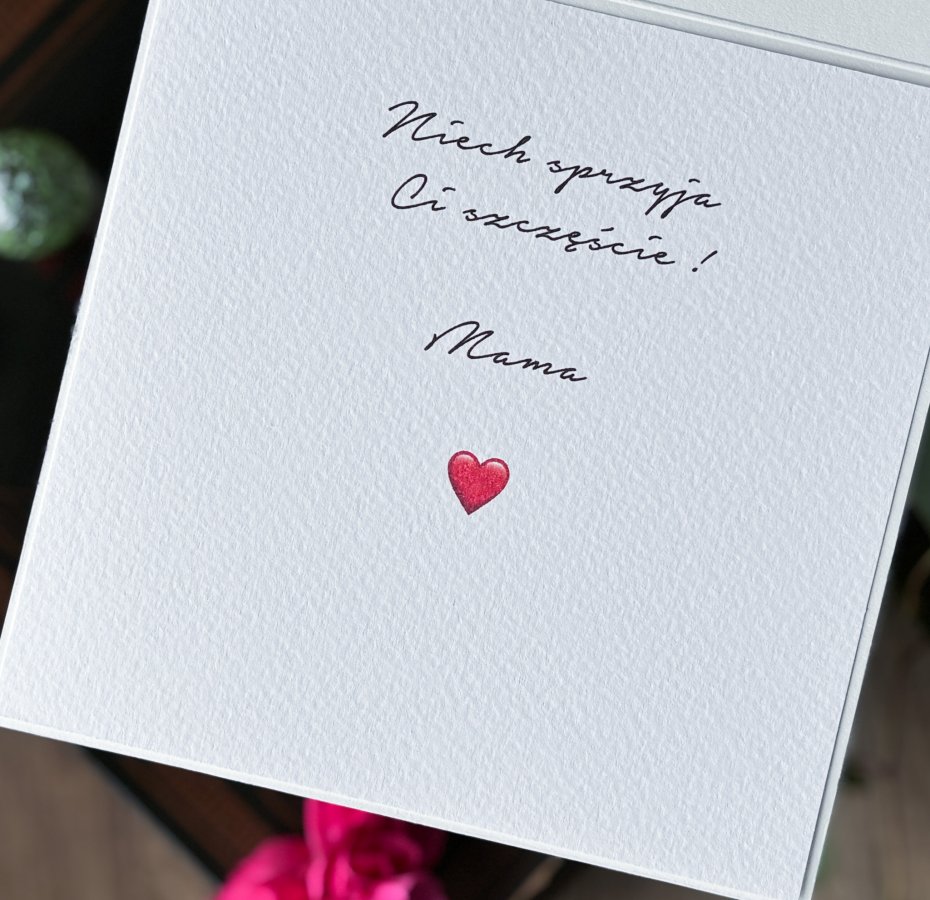 Niech sprzyja
Ci szczęście !
Mama